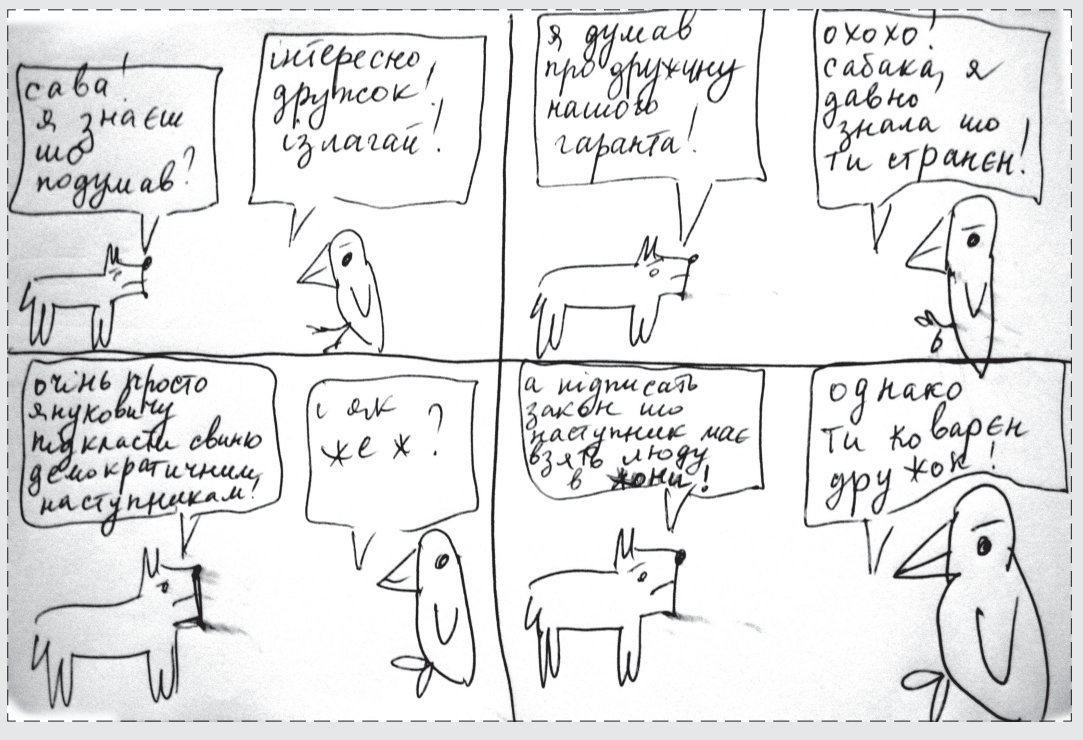 сава!
я знаєш
шо
подумав?
інтересно
дружок!
ізлагай!
я думав
про дружину
нашого
гаранта!
охохо!
сабака, я
давно
знала шо
ти странєн!
очінь просто
януковичу
підкласти свиню
демократичним
наступникам!
і як
же ж?
а підписать
закон шо
наступник має
взять люду
в жони!
однако
ти коварєн
дружок!